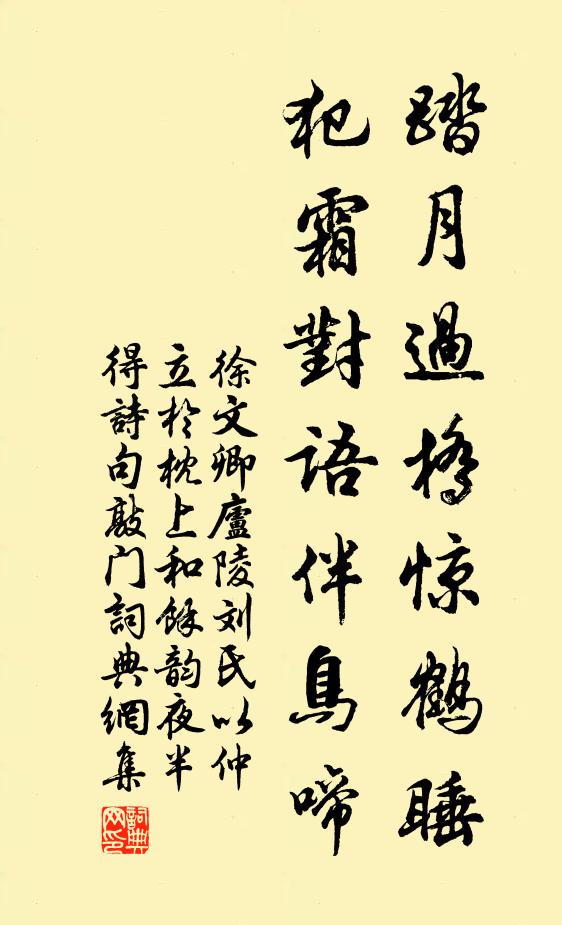 踏月過橋惊鶴睡
犯霜對語伴鳥啼
徐文卿廬陵刘氏以仲
立於枕上和餘韵夜半
得詩句敲门詞典網集
詞典
网印